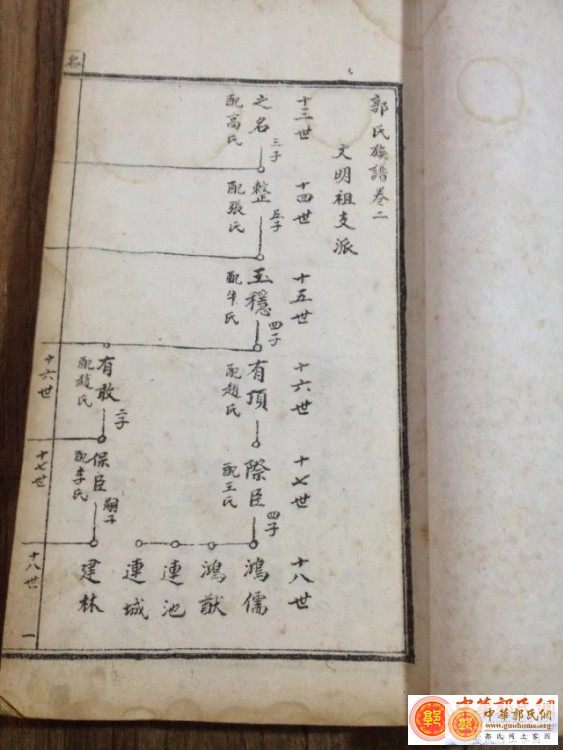 郭氏族譜卷二
文明祖支派
十三世
十四世
十五世
十六世
十七世
十八世
之名
配高氏
三子
整
配張氏
五子
玉穩
配牛氏
四子
有頂
配趙氏
際臣
配王氏
四子
鴻儒
鴻猷
連池
連城
有敢
配趙氏
二子
保臣
配李氏
嗣子
建林
名
十六世
十七世
十八世
一
中華郭氏網
中華郭氏網
www.guohome.org
郭氏網上家園
郭